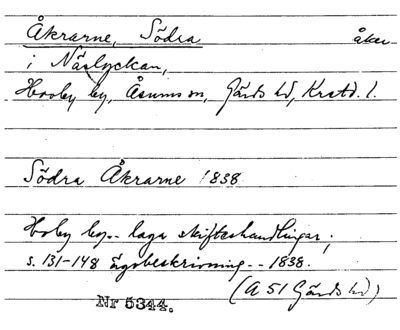 Åkrarne, Södra åker
i Näslyckan,
Hovby by, Åsums sn, Gärds hd, Krstd. l.
Södra Åkrarne 1838
Hoby by.. laga skifteshandlingar;
s. 131-148 ägobeskrivning -- 1838.
(A 51 Gärds hd)
Nr 5344.